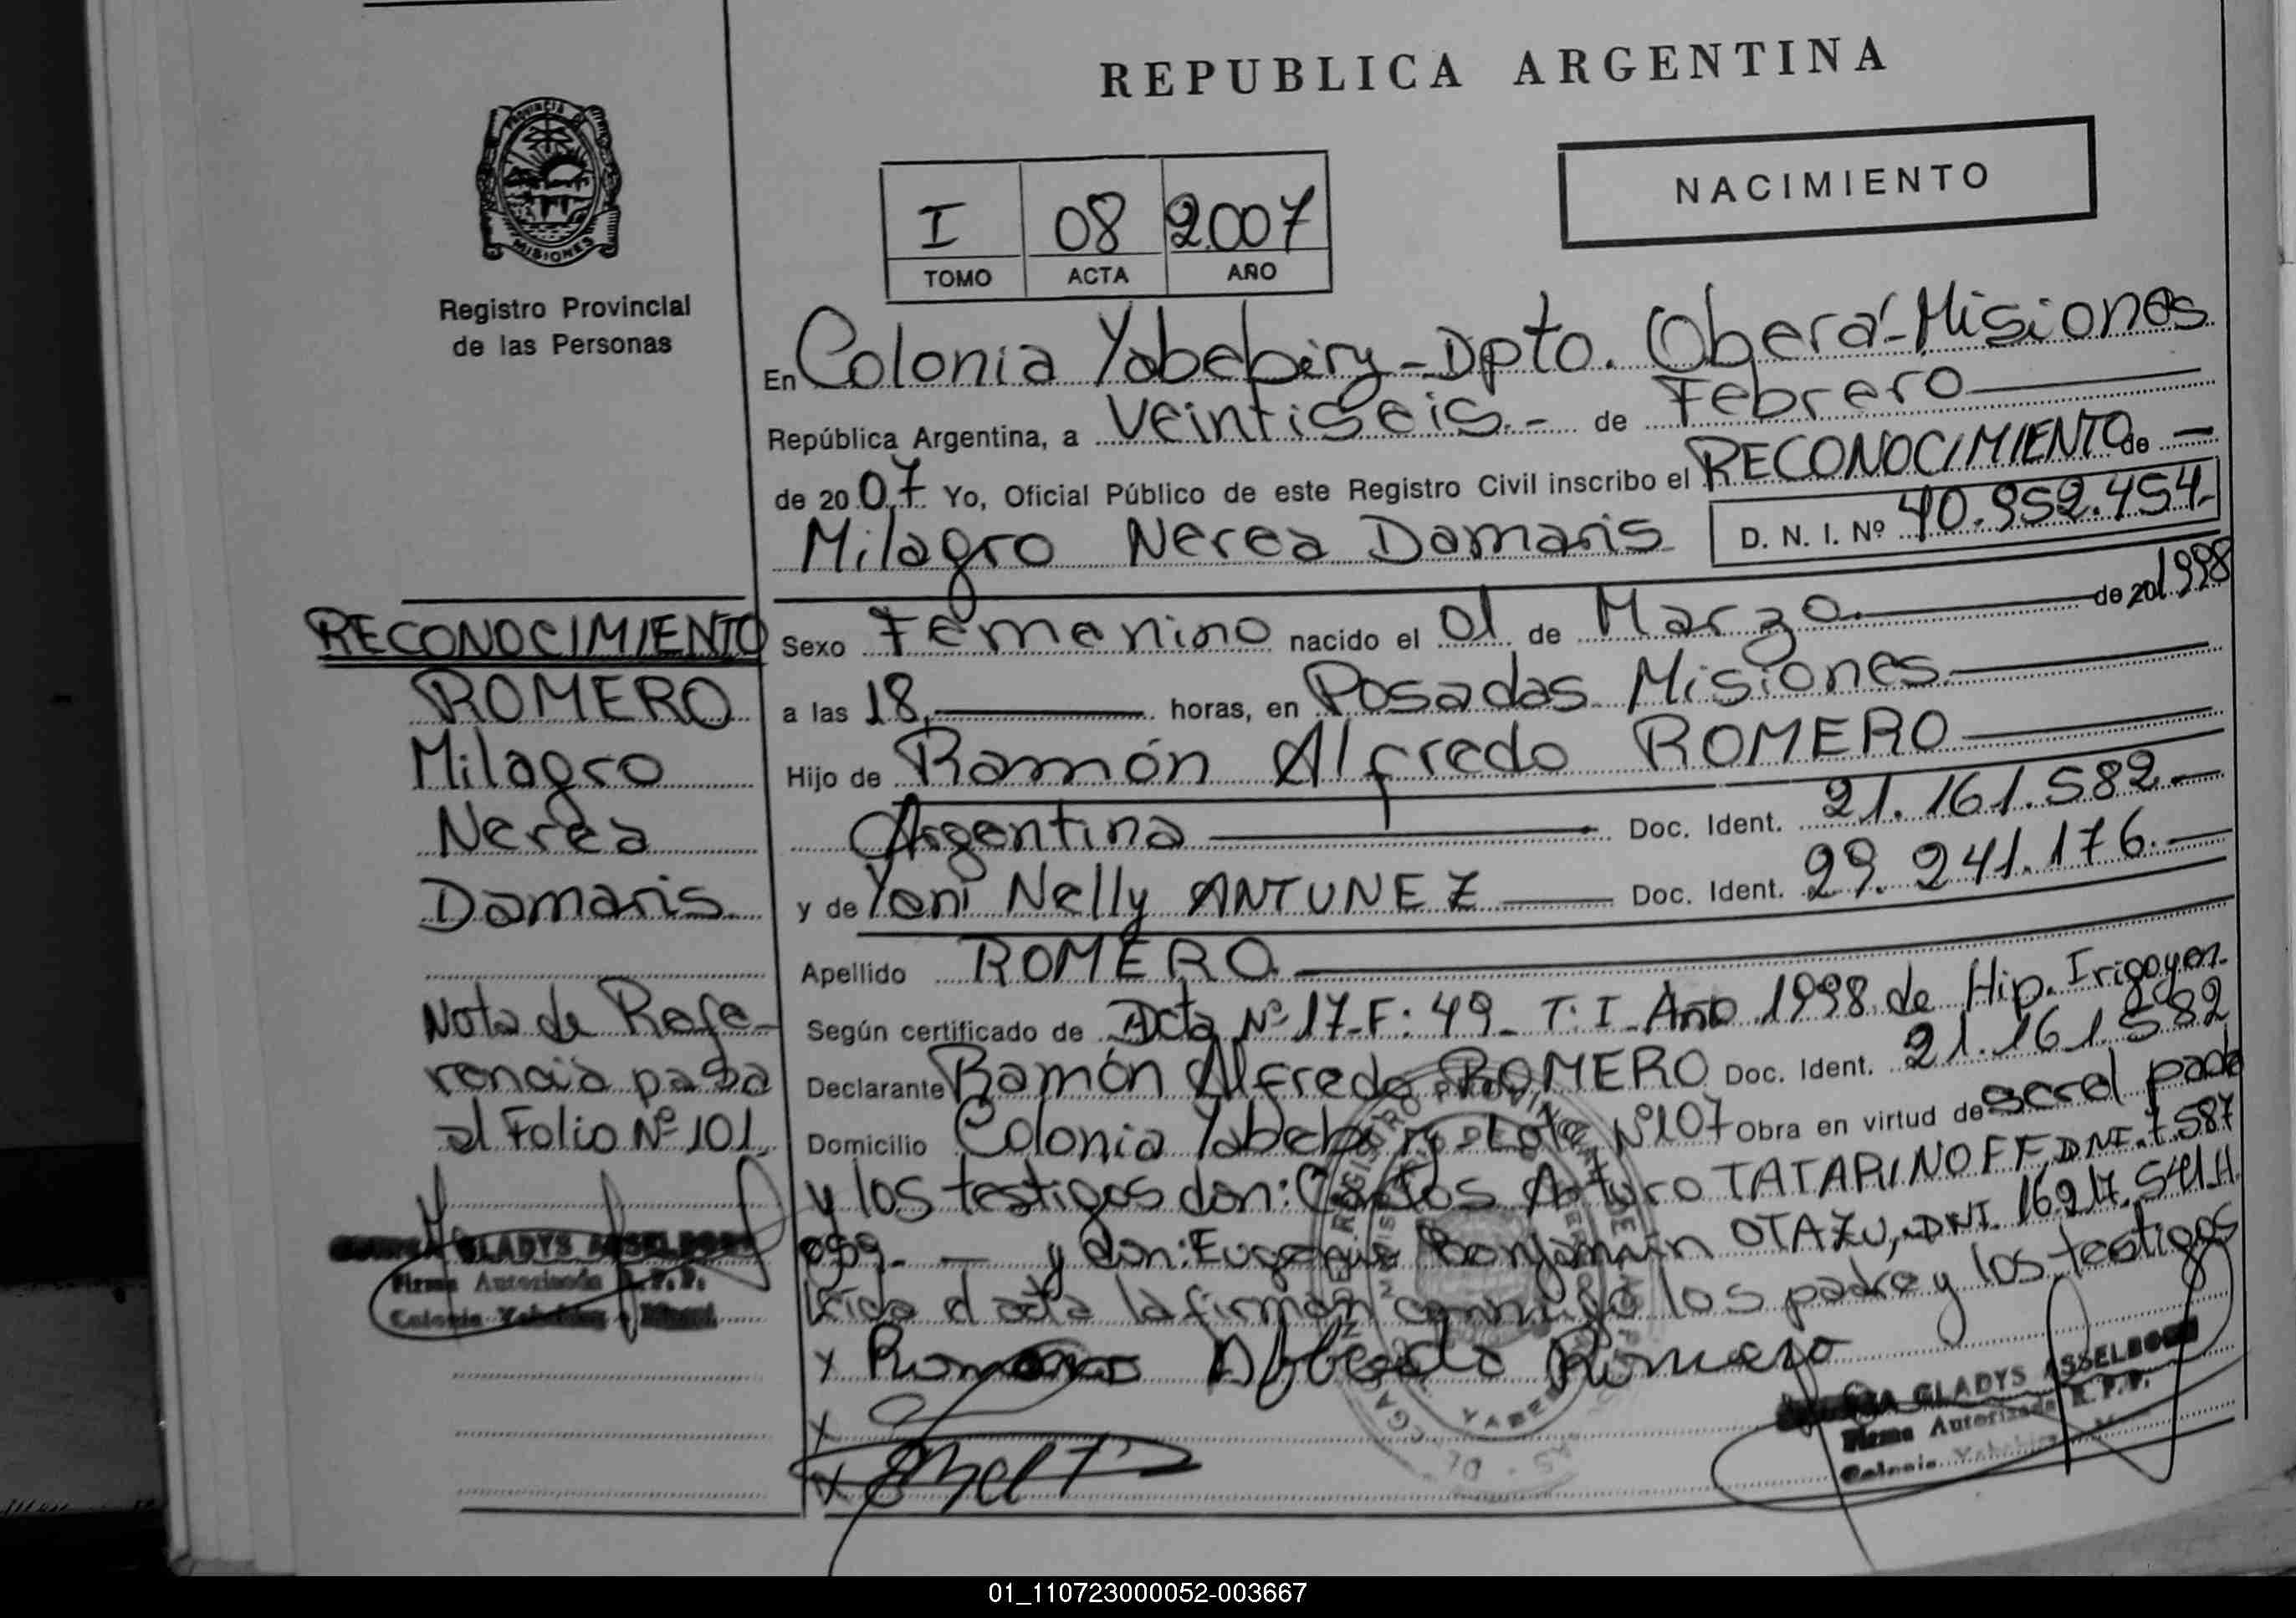 REPUBLICA ARGENTINA
NACIMIENTO
PROVINCIA DE MISIONES
Registro Provincial
de las Personas
I 08 2007
TOMO ACTA AÑO
En Colonia Yabebiry - Dpto. Oberá - Misiones
República Argentina, a Veintiseis.- de Febrero
de 2007 Yo, Oficial Público de este Registro Civil inscribo el RECONOCIMIENTO de —
Milagro Nerea Damaris D. N. I. Nº 40.952.454.-
Sexo Femenino nacido el 01 de Marzo. de 20 1998
a las 18, horas, en Posadas Misiones.
Hijo de Ramón Alfredo ROMERO
Argentina Doc. Ident. 21.161.582.-
y de Yeni Nelly ANTUNEZ Doc. Ident. 29.241.176.-
Apellido ROMERO.
Según certificado de Acta Nº 17-F: 49- T. I- Año 1998 de Hip. Irigoyen-
Declarante Ramón Alfredo ROMERO Doc. Ident. 21.161.582
Domicilio Colonia Yabebiry - Lote Nº 107 Obra en virtud de ser el padre
y los testigos don: Carlos Arturo TATARINOFF, DNI. 7.587
069.- y don: Eugenio Benjamin OTAZU, DNI.
Leida el acta la firman conmigo los padre y los testigos
RECONOCIMIENTO
ROMERO
Milagro
Nerea
Damaris
Nota de Refe-
rencia pasa
al Folio Nº 101.
GLADYS ASSELBORN
Firma Autorizada R.P.P.
Colonia Yabebiry
GLADYS ASSELBORN
Firma Autorizada R.P.P.
Colonia Yabebiry
01_110723000052-003667